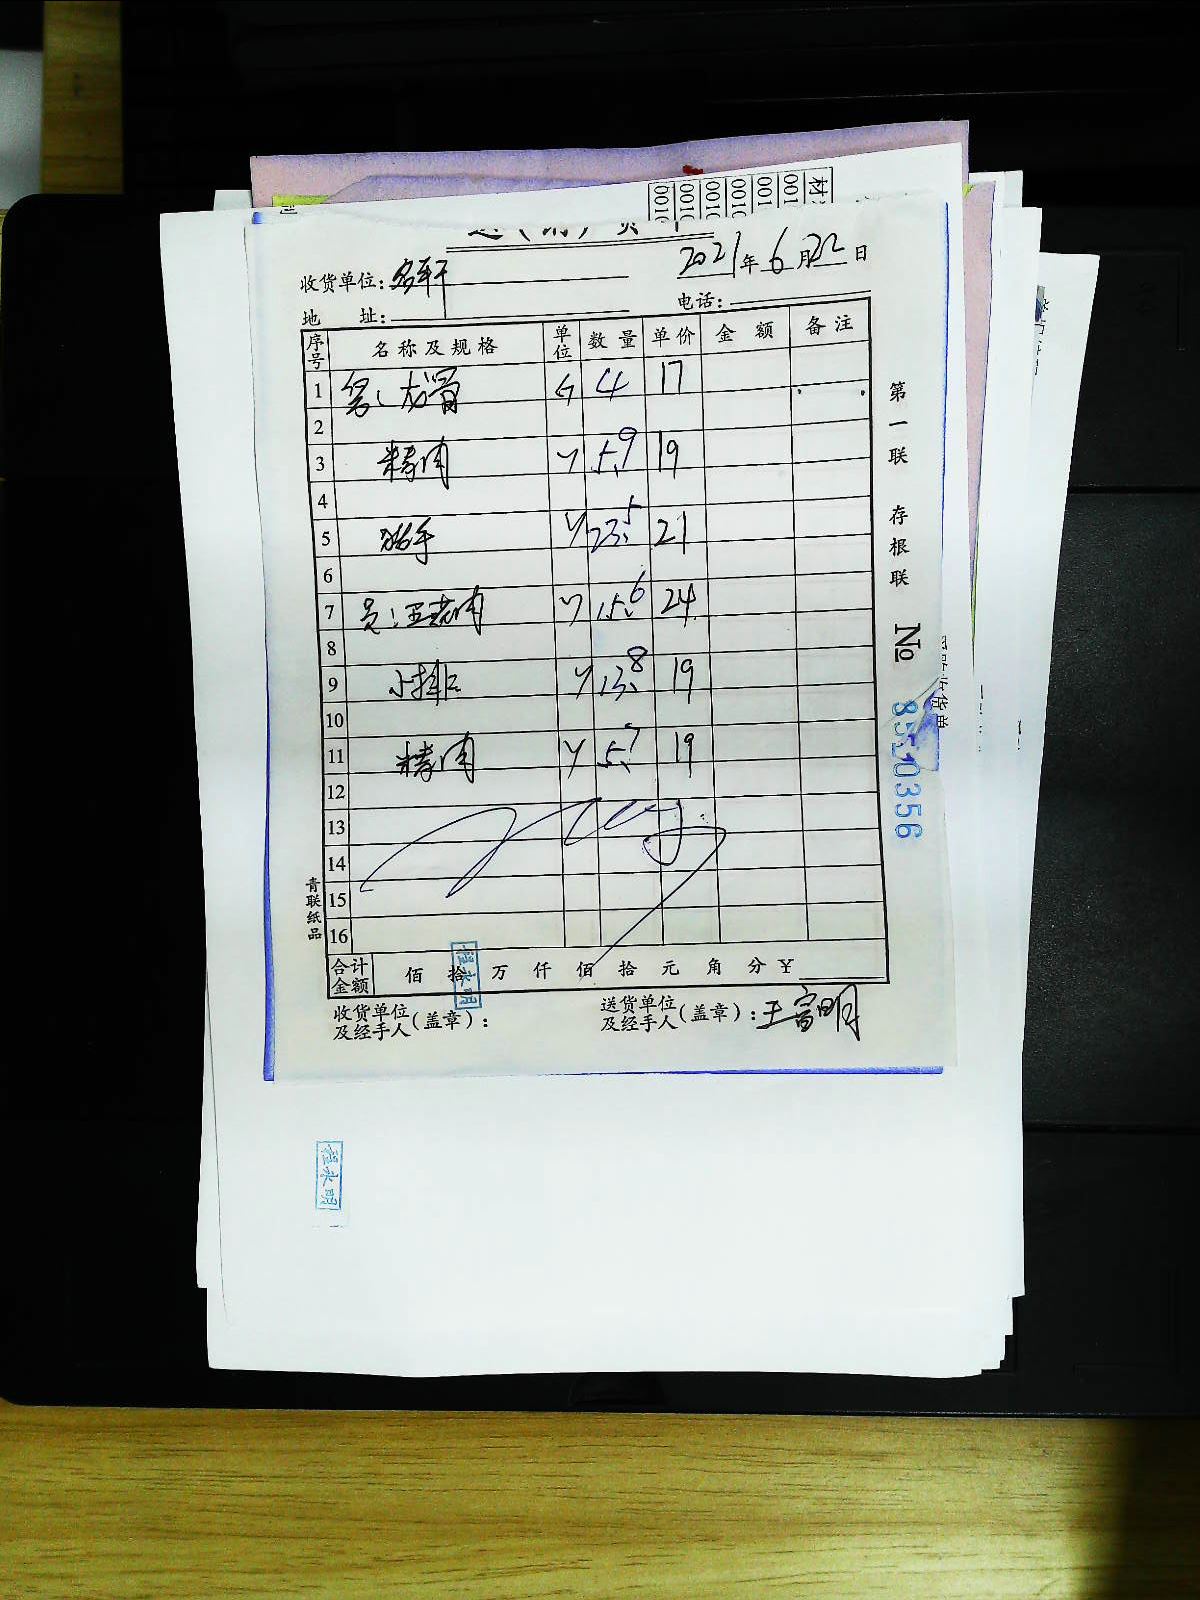 收货单位：名轩 2021年6月22日
地 址： 电话：
序号 名称及规格 单位 数量 单价 金额 备注
1 龙骨 4 17
2
3 精肉 5.9 19
4
5 23.5 21
6
7 员：五花肉 15.6 24
8
9 小排 13.8 19
10
11 精肉 5.7 19
12
13
14
15
16
合计金额 佰 拾 万 仟 佰 拾 元 角 分 ¥
收货单位及经手人（盖章）： 送货单位及经手人（盖章）：王富明
第一联 存根联
№ 8510356
青联纸品
程永明
程永明